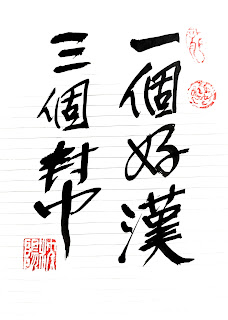 一個好漢
三個幫